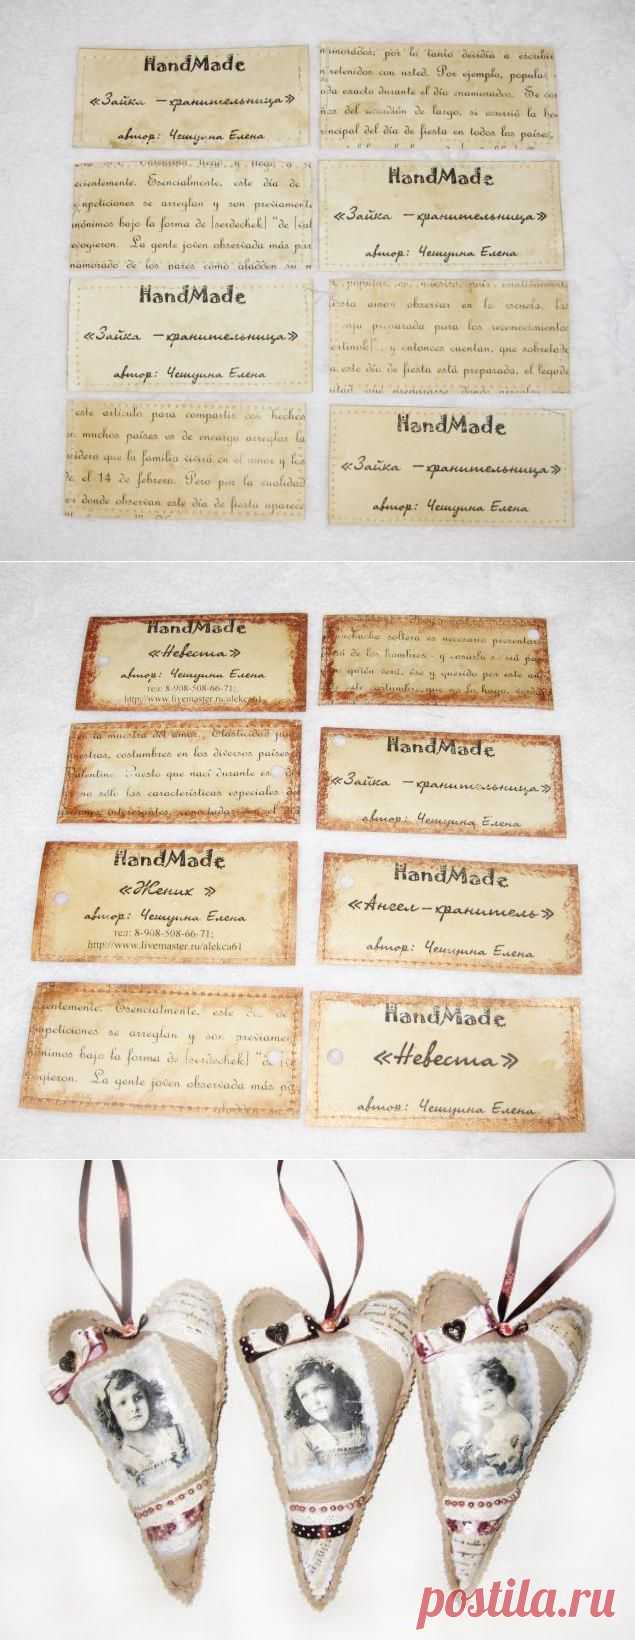 HandMade
«Зайка – хранительница»
автор: Чешуина Елена
namorados; por lo tanto decidía a escribir
retenidos con usted. Por ejemplo, popular
exacta durante el día enamorados. Se
del de largo, si ocurrió la
incipal del día de fiesta en todos los países,
ecientemente. Esencialmente, este día de
npeticiones se arreglan y son previament
nónimos bajo la forma de [serdechek] "de
evogieron. La gente joven observada más par
namorado de los países como
HandMade
«Зайка – хранительница»
автор: Чешуина Елена
HandMade
«Зайка – хранительница»
автор: Чешуина Елена
observar en la escuela, las
preparada para los reconocimientos
y entonces cuentan, que sobretodo
a este día de fiesta está preparada, el
este artículo para compartir con hechos
muchos países es de encargo arreglar la
que la familia vivirá en el amor y los
el 14 de febrero. Pero por la cualidad
donde observan este día de fiesta aparece
HandMade
«Зайка – хранительница»
автор: Чешуина Елена
HandMade
«Невеста»
автор: Чешуина Елена
тел: 8-908-508-66-71;
http://www.livemaster.ru/alekca61
soltera es necesario presentar
de los hombres y
quién será, ése y querido por este
este costumbre que no la haya
la muestra del amor., Elasticidad
costumbres en los diversos países
Puesto que nací durante
no sólo las características especiales de
HandMade
«Зайка – хранительница»
автор: Чешуина Елена
HandMade
«Жених »
автор: Чешуина Елена
тел: 8-908-508-66-71;
http://www.livemaster.ru/alekca61
HandMade
«Ангел – хранитель»
автор: Чешуина Елена
entemente. Esencialmente, este día de
npeticiones se arreglan y son previamen
ónimos bajo la forma de [serdechek] "de
ogieron. La gente joven observada más pa
HandMade
«Невеста»
автор: Чешуина Елена
postila.ru